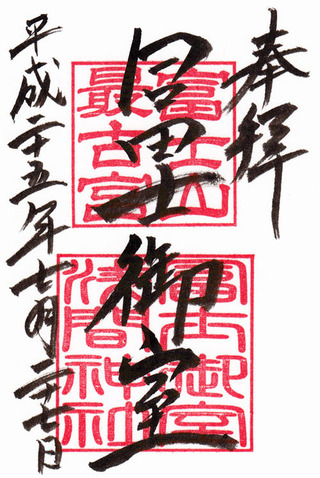 奉拝
冨士御室
富士山
最古宮
富士御室
浅間神社
平成二十五年七月二十七日